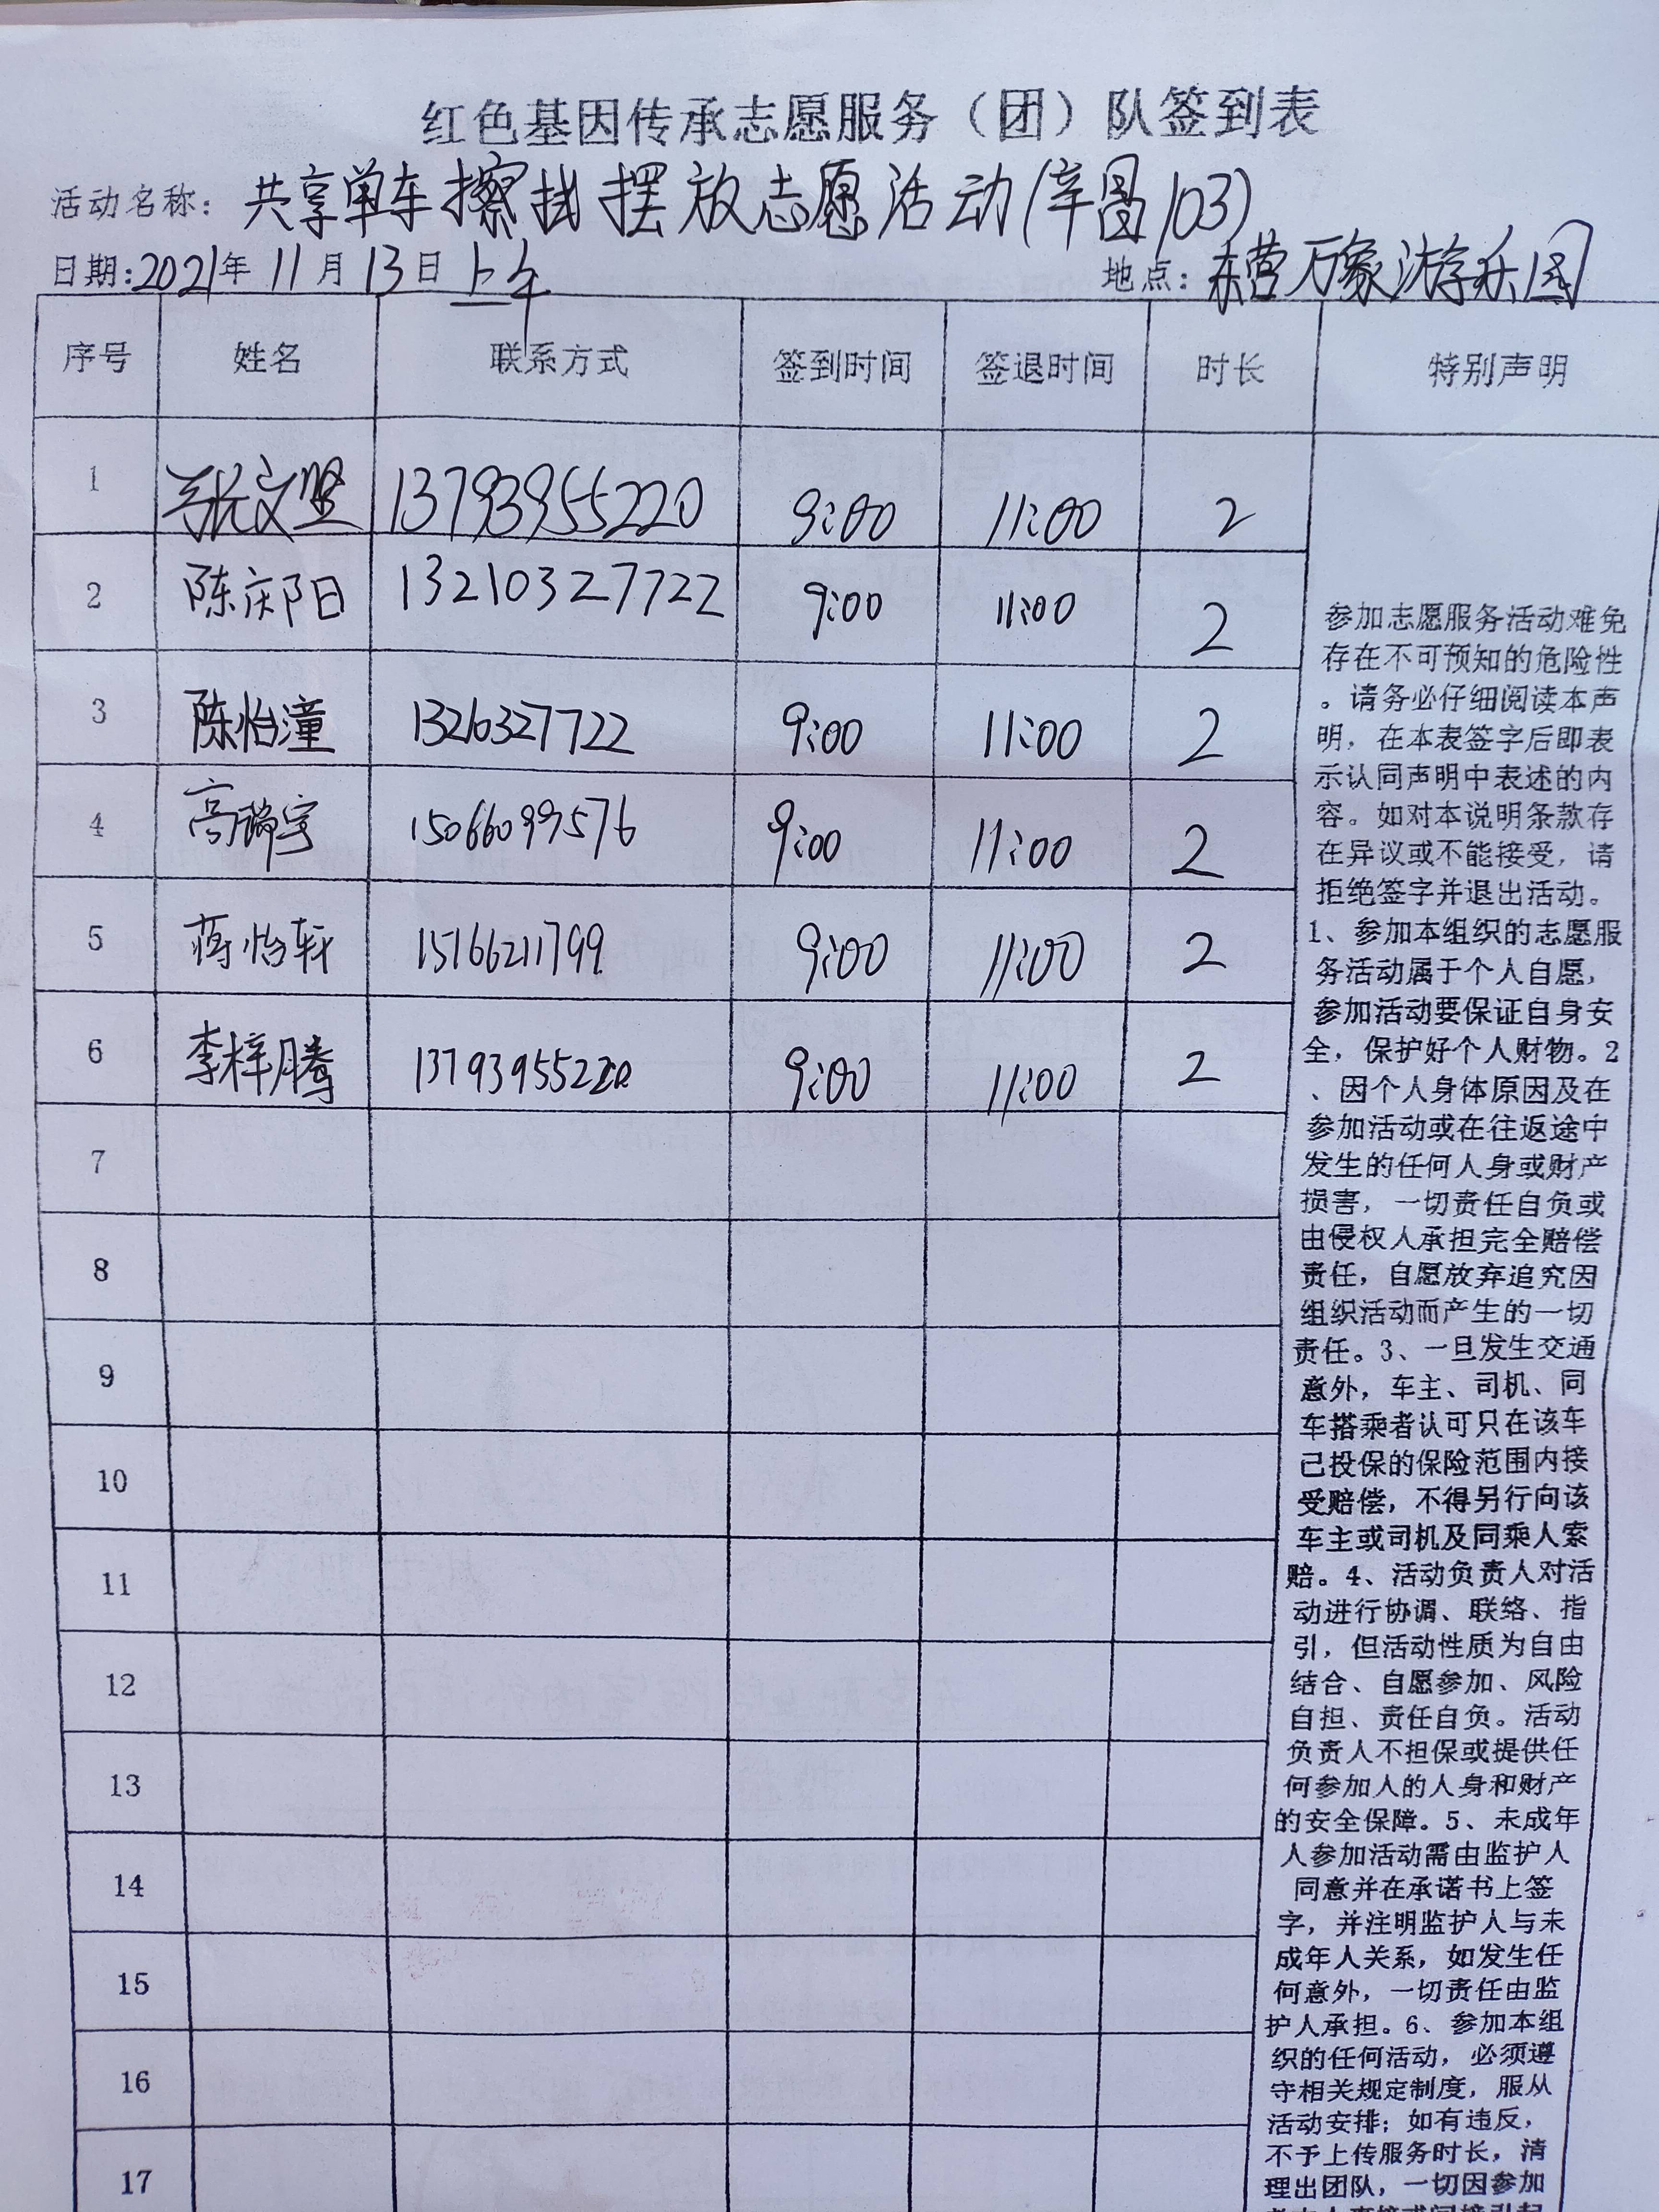 红色基因传承志愿服务（团）队签到表
活动名称：共享单车擦拭摆放志愿活动(辛昌103)
日期:2021年11月13日上午 地点：东营万象游乐园
序号 姓名 联系方式 签到时间 签退时间 时长 特别声明
1 张文坚 13793955220 9:00 11:00 2
2 陈庆阳 13210327722 9:00 11:00 2
3 陈怡潼 13210327722 9:00 11:00 2
4 高瑞宇 15066099576 9:00 11:00 2
5 蒋怡轩 15166211799 9:00 11:00 2
6 李梓腾 13793955220 9:00 11:00 2
7
8
9
10
11
12
13
14
15
16
17
参加志愿服务活动难免
存在不可预知的危险性
。请务必仔细阅读本声
明，在本表签字后即表
示认同声明中表述的内
容。如对本说明条款存
在异议或不能接受，请
拒绝签字并退出活动。
1、参加本组织的志愿服
务活动属于个人自愿，
参加活动要保证自身安
全，保护好个人财物。2
、因个人身体原因及在
参加活动或在往返途中
发生的任何人身或财产
损害，一切责任自负或
由侵权人承担完全赔偿
责任，自愿放弃追究因
组织活动而产生的一切
责任。3、一旦发生交通
意外，车主、司机、同
车搭乘者认可只在该车
已投保的保险范围内接
受赔偿，不得另行向该
车主或司机及同乘人索
赔。4、活动负责人对活
动进行协调、联络、指
引，但活动性质为自由
结合、自愿参加、风险
自担、责任自负。活动
负责人不担保或提供任
何参加人的人身和财产
的安全保障。5、未成年
人参加活动需由监护人
同意并在承诺书上签
字，并注明监护人与未
成年人关系，如发生任
何意外，一切责任由监
护人承担。6、参加本组
织的任何活动，必须遵
守相关规定制度，服从
活动安排；如有违反，
不予上传服务时长，清
理出团队，一切因参加